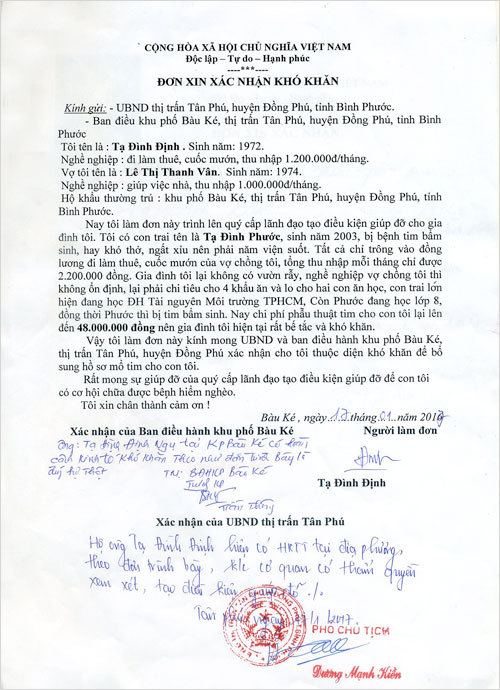 CỘNG HÒA XÃ HỘI CHỦ NGHĨA VIỆT NAM
Độc lập – Tự do – Hạnh phúc
----***----
ĐƠN XIN XÁC NHẬN KHÓ KHĂN
Kính gửi: - UBND thị trấn Tân Phú, huyện Đồng Phú, tỉnh Bình Phước.
- Ban điều khu phố Bàu Ké, thị trấn Tân Phú, huyện Đồng Phú, tỉnh Bình
Phước
Tôi tên là : Tạ Đình Định . Sinh năm: 1972.
Nghề nghiệp : đi làm thuê, cuốc mướn, thu nhập 1.200.000đ/tháng.
Vợ tôi tên là : Lê Thị Thanh Vân. Sinh năm: 1974.
Nghề nghiệp : giúp việc nhà, thu nhập 1.000.000đ/tháng.
Hộ khẩu thường trú : khu phố Bàu Ké, thị trấn Tân Phú, huyện Đồng Phú, tỉnh
Bình Phước.
Nay tôi làm đơn này trình lên quý cấp lãnh đạo tạo điều kiện giúp đỡ cho gia
đình tôi. Tôi có con trai tên là Tạ Đình Phước, sinh năm 2003, bị bệnh tim bẩm
sinh, hay khó thở, ngất xỉu nên phải năm viện suốt. Tất cả chỉ trông vào đồng
lương đi làm thuê, cuốc mướn của vợ chồng tôi, tổng thu nhập mỗi tháng chỉ được
2.200.000 đồng. Gia đình tôi lại không có vườn rẫy, nghề nghiệp vợ chồng tôi thì
không ổn định, lại phải chi tiêu cho 4 khẩu ăn và lo cho hai con ăn học, con trai lớn
hiện đang học ĐH Tài nguyên Môi trường TPHCM, Còn Phước đang học lớp 8,
đồng thời Phước thì bị tim bẩm sinh. Nay chi phí phẫu thuật tim cho con tôi lại lên
đến 48.000.000 đồng nên gia đình tôi hiện tại rất bế tắc và khó khăn.
Vậy tôi làm đơn này kính mong UBND và ban điều hành khu phố Bàu Ké,
thị trấn Tân Phú, huyện Đồng Phú xác nhận cho tôi thuộc diện khó khăn để bổ
sung hồ sơ mổ tim cho con tôi.
Rất mong sự giúp đỡ của quý cấp lãnh đạo tạo điều kiện giúp đỡ để con tôi
có cơ hội chữa được bệnh hiểm nghèo.
Tôi xin chân thành cảm ơn !
Bàu Ké , ngày 17 tháng 01 năm 2017
Xác nhận của Ban điều hành khu phố Bàu Ké Người làm đơn
Ông: Tạ Đình Định Ngụ tại KP Bàu Ké có hoàn
cảnh kinh tế khó khăn theo như đơn trình bày là
đúng sự thật
TM: BĐHKP Bàu Ké
Trưởng KP
Tạ Đình Định
Xác nhận của UBND thị trấn Tân Phú
Hộ ông Tạ Đình Định hiện có HKTT tại địa phương,
theo đơn trình bày, k/c cơ quan có thẩm quyền
xem xét, tạo điều kiện giúp đỡ ./.
Tân Phú, 1/2017.
PHÓ CHỦ TỊCH
Dương Mạnh Kiên